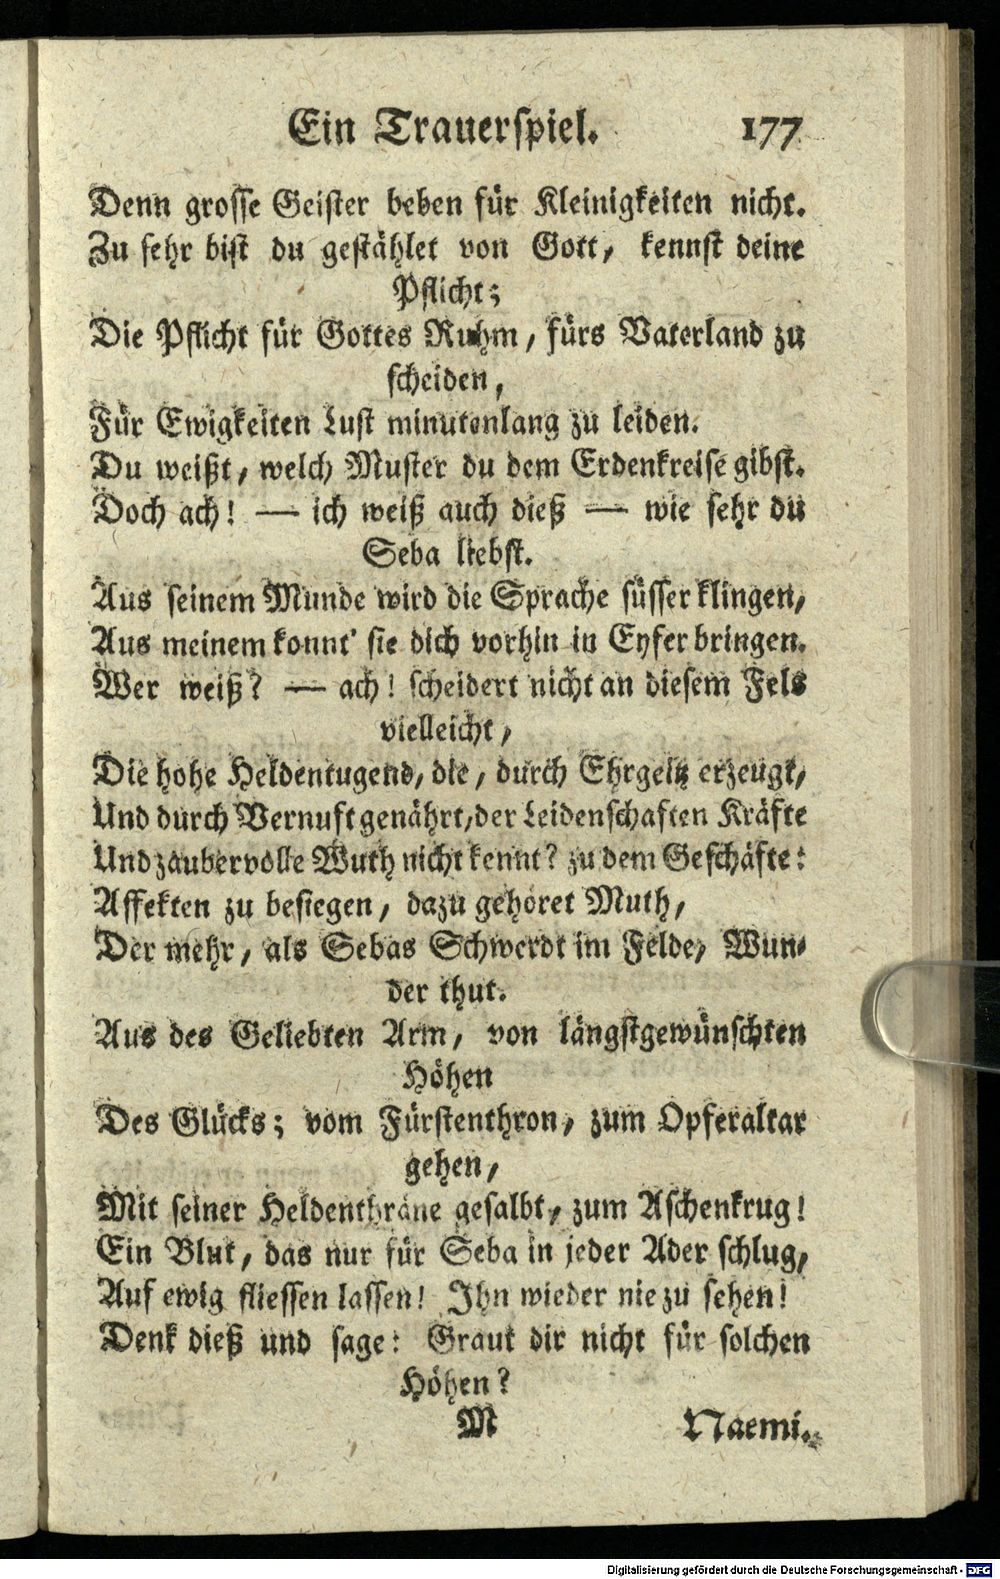 Ein Trauerspiel. 177
Denn grosse Geister beben für Kleinigkeiten nicht.
Zu sehr bist du gestählet von Gott, kennst deine
Pflicht;
Die Pflicht für Gottes Ruhm, fürs Vaterland zu
scheiden,
Für Ewigkeiten Lust minutenlang zu leiden.
Du weißt, welch Muster du dem Erdenkreise gibst.
Doch ach! — ich weiß auch dieß — wie sehr du
Seba liebst.
Aus seinem Munde wird die Sprache süsser klingen,
Aus meinem konnt' sie dich vorhin in Eyfer bringen.
Wer weiß? — ach! scheidert nicht an diesem Fels
vielleicht,
Die hohe Heldentugend, die, durch Ehrgeitz erzeugt,
Und durch Vernuft genährt, der Leidenschaften Kräfte
Und zaubervolle Wuth nicht kennt? zu dem Geschäfte:
Affekten zu besiegen, dazu gehöret Muth,
Der mehr, als Sebas Schwerdt im Felde, Wun-
der thut.
Aus des Geliebten Arm, von längstgewünschten
Höhen
Des Glücks; vom Fürstenthron, zum Opferaltar
gehen,
Mit seiner Heldenthräne gesalbt, zum Aschenkrug!
Ein Blut, das nur für Seba in jeder Ader schlug,
Auf ewig fliessen lassen! Ihn wieder nie zu sehen!
Denk dieß und sage: Graut dir nicht für solchen
Höhen?
M Naemi.
Digitalisierung gefördert durch die Deutsche Forschungsgemeinschaft - DFG